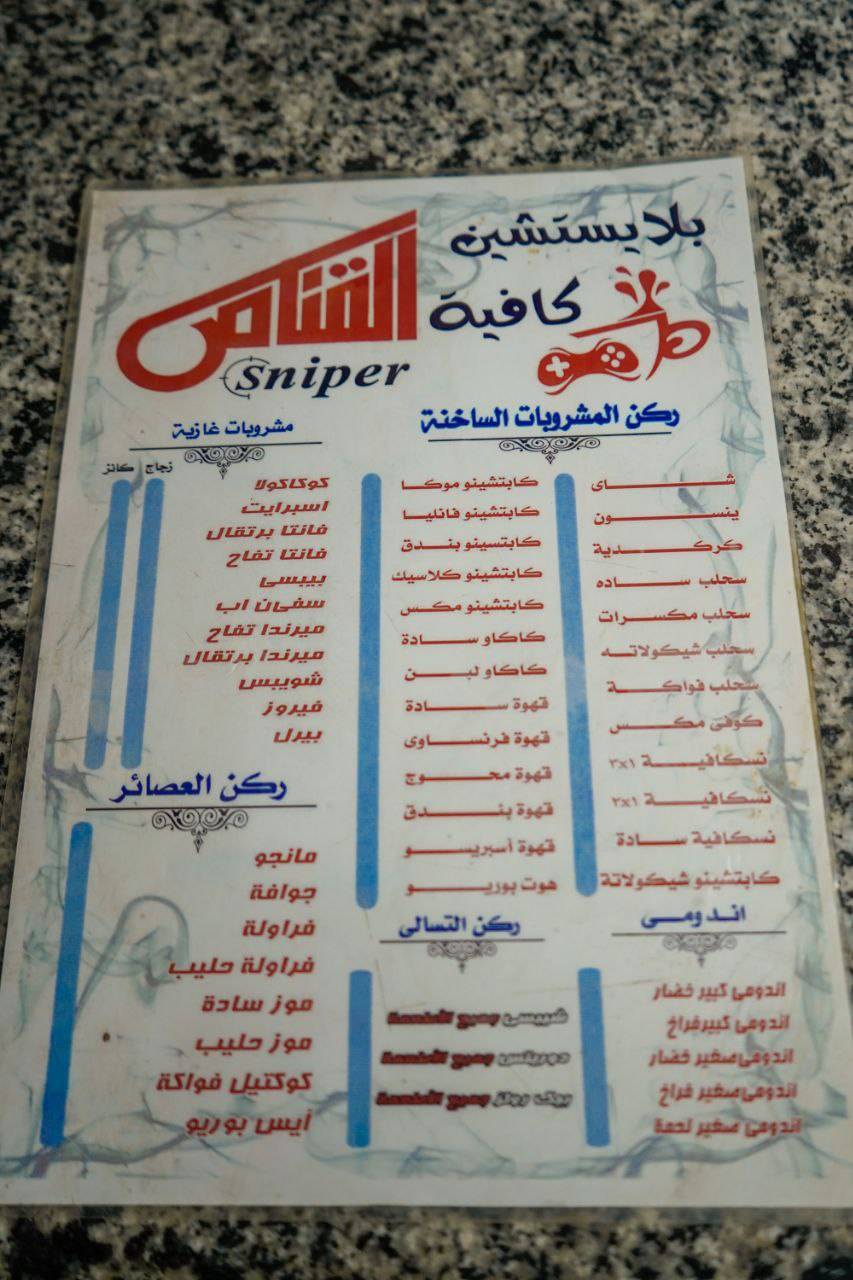 بلايستشين
كافية
القناص
sniper
ركن المشروبات الساخنة
شاى
ينسون
كركدية
سحلب ساده
سحلب مكسرات
سحلب شيكولاته
سحلب فواكة
كوفى مكس
نسكافية ٣x١
نسكافية ٢x١
نسكافية سادة
كابتشينو شيكولاتة
كابتشينو موكا
كابتشينو فانليا
كابتسينو بندق
كابتشينو كلاسيك
كابتشينو مكس
كاكاو سادة
كاكاو لبن
قهوة سادة
قهوة فرنساوى
قهوة محوج
قهوة بندق
قهوة أسبريسو
هوت بوريو
مشروبات غازية
زجاج كانز
كوكاكولا
اسبرايت
فانتا برتقال
فانتا تفاح
بيبسى
سفن اب
ميرندا تفاح
ميرندا برتقال
شويبس
فيروز
بيرل
ركن العصائر
مانجو
جوافة
فراولة
فراولة حليب
موز سادة
موز حليب
كوكتيل فواكة
أيس بوريو
ركن التسالى
شيبسى جميع الأطعمة
دوريتس جميع الأطعمة
بيك رولز جميع الأطعمة
اندومى
اندومى كبير خضار
اندومى كبير فراخ
اندومى صغير خضار
اندومى صغير فراخ
اندومى صغير لحمة